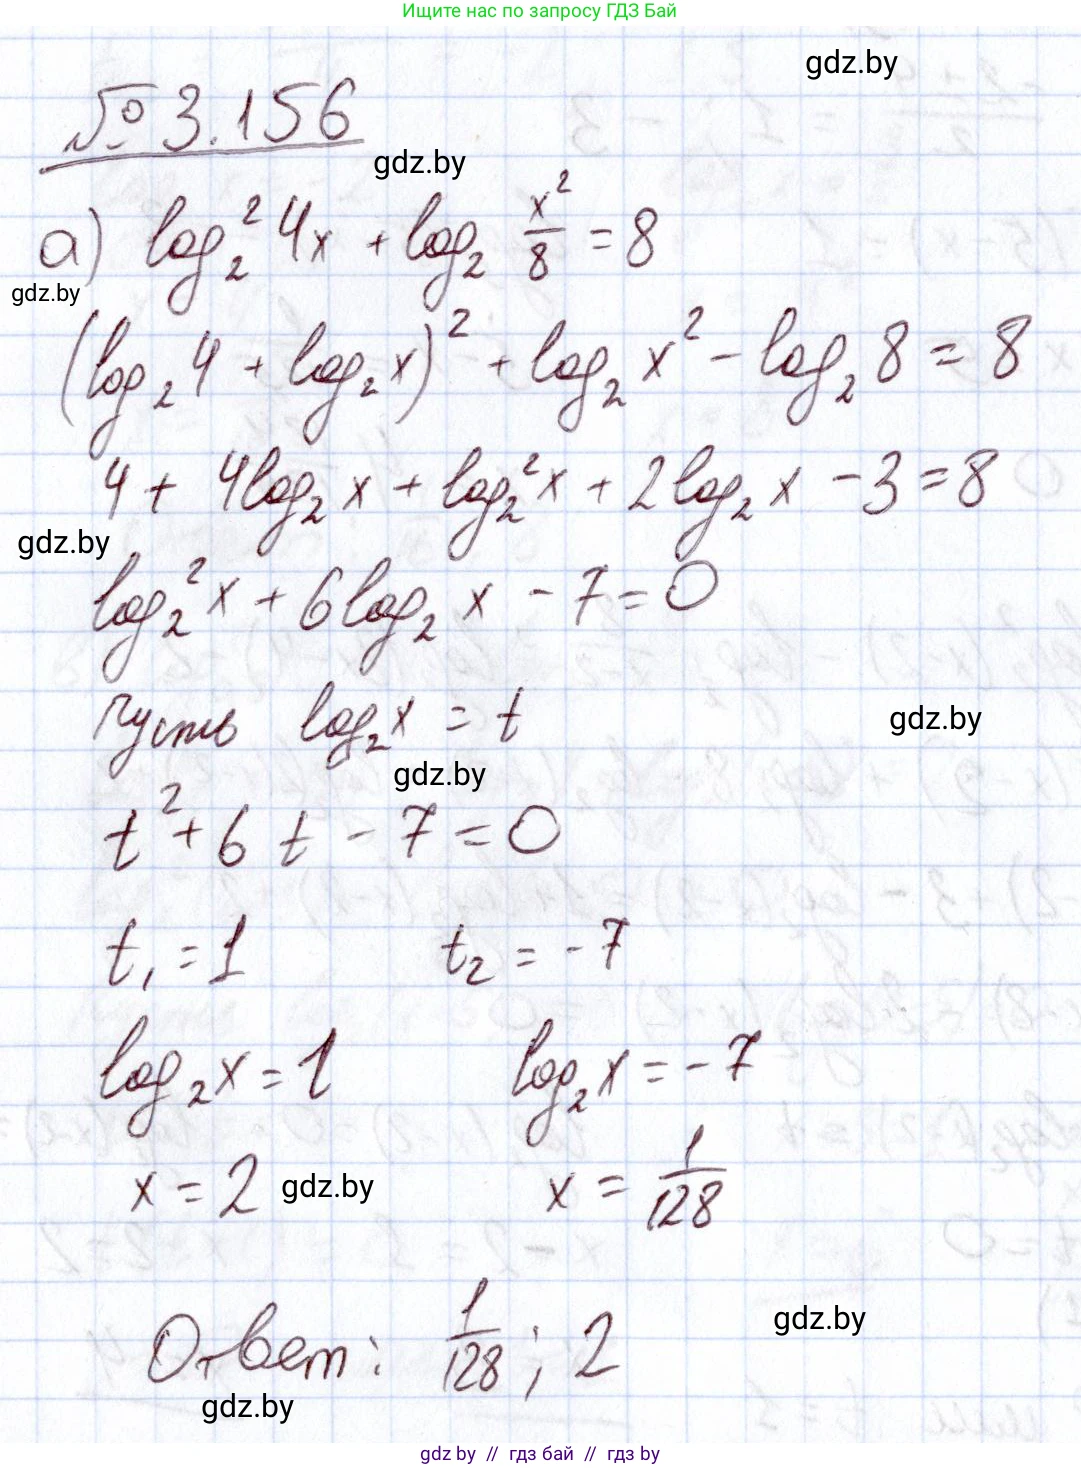 Ищите нас по запросу ГДЗ Бай
gdz.by
№ 3.156
gdz.by
а) log₂² 4x + log₂ x²/8 = 8
gdz.by
(log₂ 4 + log₂ x)² + log₂ x² - log₂ 8 = 8
4 + 4log₂ x + log₂² x + 2log₂ x - 3 = 8
gdz.by
log₂² x + 6log₂ x - 7 = 0
Пусть log₂ x = t
gdz.by
gdz.by
t² + 6t - 7 = 0
t₁ = 1 t₂ = -7
log₂ x = 1 log₂ x = -7
x = 2 gdz.by x = 1/128
Ответ: 1/128; 2
gdz.by
gdz.by
gdz.by // гдз бай // гдз by